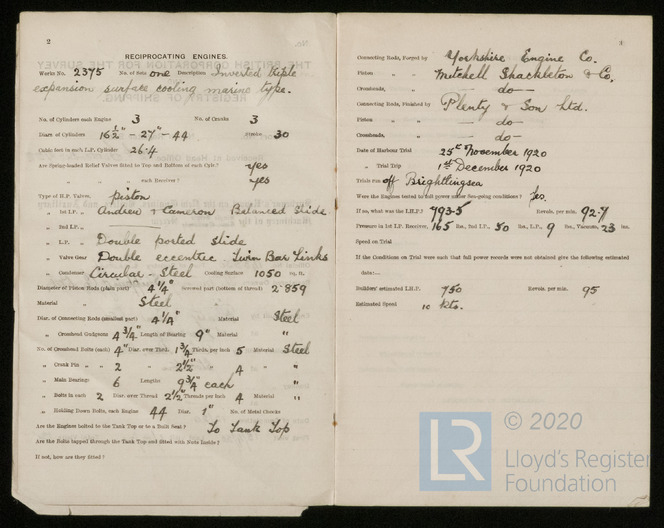 2
RECIPROCATING ENGINES.
Works No. 2375 No. of Sets one Description Inverted triple
expansion surface cooling marine type.
No. of Cylinders each Engine 3 No. of Cranks 3
Diars. of Cylinders 16½" - 27" - 44 Stroke 30
Cubic feet in each L.P. Cylinder 26.4
Are Spring-loaded Relief Valves fitted to Top and Bottom of each Cylr.? yes
" " each Receiver? yes
Type of H.P. Valves, piston
" 1st I.P. " Andrew & Cameron Balanced Slide
" 2nd I.P. "
" L.P. " Double ported slide
" Valve Gear Double eccentric Twin Bar Links
" Condenser Circular - Steel Cooling Surface 1050 sq. ft.
Diameter of Piston Rods (plain part) 4¼" Screwed part (bottom of thread) 2.859
Material " Steel
Diar. of Connecting Rods (smallest part) 4¼" Material Steel
" Crosshead Gudgeons 4¾" Length of Bearing 9" Material "
No. of Crosshead Bolts (each) 4" Diar. over Thrds. 1¾" Thrds. per inch 5 Material Steel
" Crank Pin " " 2 " 2½" " 4 " "
" Main Bearings 6 Lengths 9¾" each
" Bolts in each 2 Diar. over Thread 2½" Threads per inch 4 Material "
" Holding Down Bolts, each Engine 44 Diar. 1" No. of Metal Chocks
Are the Engines bolted to the Tank Top or to a Built Seat? To Tank Top
Are the Bolts tapped through the Tank Top and fitted with Nuts Inside?
If not, how are they fitted?
3
Connecting Rods, Forged by Yorkshire Engine Co.
Piston " " Mitchell Shackleton & Co.
Crossheads, " - do -
Connecting Rods, Finished by Plenty & Son Ltd.
Piston " " - do -
Crossheads, " - do -
Date of Harbour Trial 25th November 1920
" Trial Trip 1st December 1920
Trials run off Brightlingsea
Were the Engines tested to full power under Sea-going conditions? Yes.
If so, what was the I.H.P.? 793.5 Revols. per min. 92.7
Pressure in 1st I.P. Receiver, 165 lbs., 2nd I.P., 50 lbs., L.P., 9 lbs., Vacuum, 23 ins.
Speed on Trial
If the Conditions on Trial were such that full power records were not obtained give the following estimated
data:—
Builders' estimated I.H.P. 750 Revols. per min. 95
Estimated Speed 10 kts.
LR © 2020
Lloyd's Register
Foundation